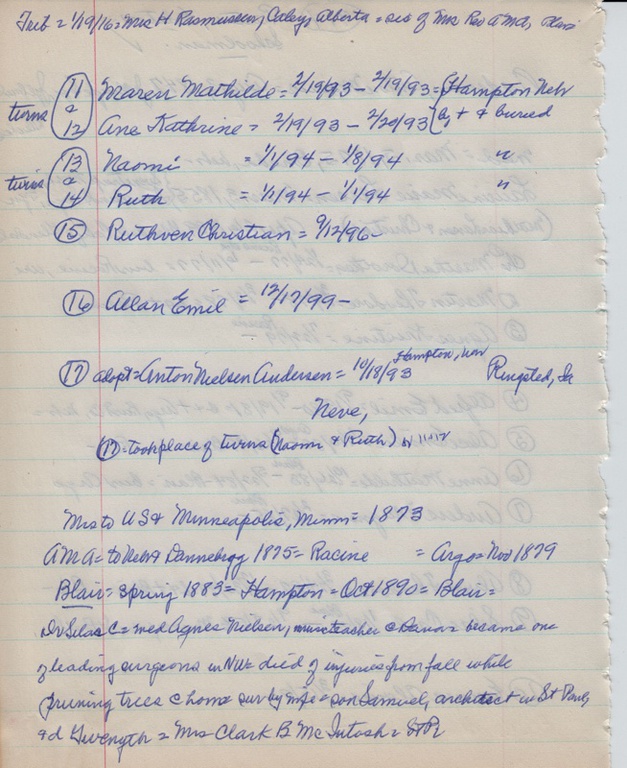 Trib = 1/19/16 = Mrs H Rasmussen, Calgy, Alberta = sis of Mrs Rev A Md,
twins 11 & 12 Maren Mathilde = 2/19/93 – 2/19/93 = Hampton Neb
Ane Kathrine = 2/19/93 – 2/20/93 b, + & buried
twins 13 & 14 Naomi = 1/1/94 – 1/8/94 "
Ruth = 1/1/94 – 1/1/94 "
15 Ruthven Christian = 9/12/96 –
16 Allan Emil = 12/17/99 –
17 adopt = Anton Nielsen Andersen = 10/18/93 Hampton, Ringsted, Ia
Neve,
17 = took place of twins (Naomi & Ruth) or 11 & 12
Mrs to US & Minneapolis, Minn = 1873
AMA = to Neb & Dannebrog 1875 = Racine = Argo = Nov 1879
Blair = Spring 1883 = Hampton = Oct 1890 = Blair =
Dr Silas C = med Agnes Nielsen, music teacher c Dana = became one
of leading surgeons in NW = died of injuries from fall while
pruning trees c home sur by wife = son Samuel, architect in St Paul,
& d Gwenyth = Mrs Clark B McIntosh = St P